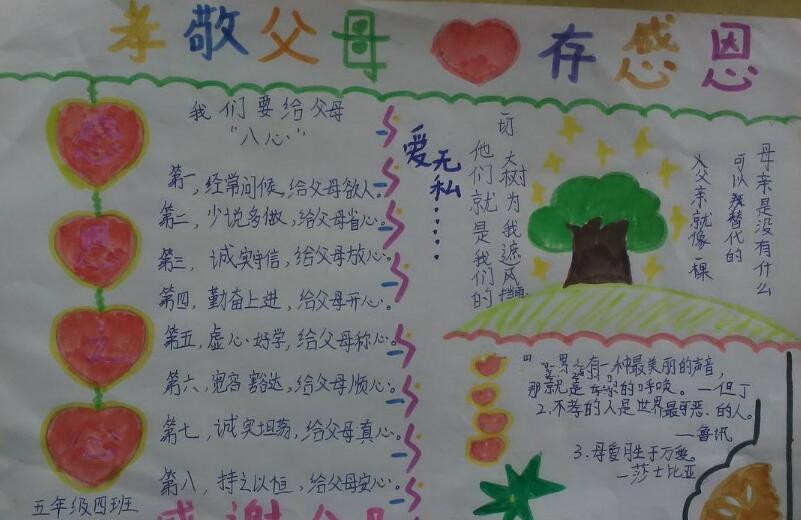 孝敬父母 存感恩
我们要给父母
“八心”
第一,经常问候,给父母欲人。
第二,少说多做,给父母省心。
第三,诚实守信,给父母放心。
第四,勤奋上进,给父母开心。
第五,虚心好学,给父母称心。
第六,宽容豁达,给父母顺心。
第七,诚实坦荡,给父母真心。
第八,持之以恒,给父母安心。
五年级四班
爱无私……
母亲是没有什么
可以替代的
父亲就像一棵
大树为我遮风挡雨
他们就是我们的
有一种最美丽的声音,
那就是母亲的呼唤。—但丁
2.不孝的人是世界最可恶的人。
—鲁讯
3.母爱胜于万爱。
—莎士比亚
感谢父母